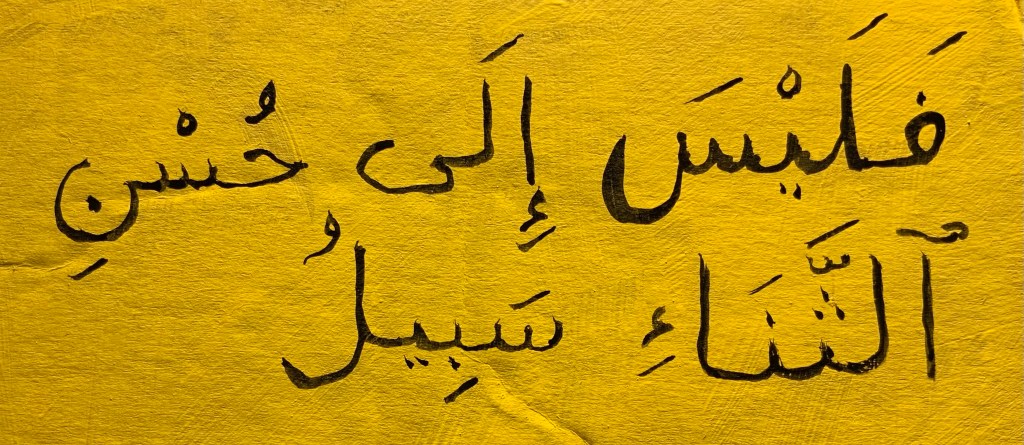 فَلَيْسَ إِلَى حُسْنِ
ٱلثَّنَاءِ سَبِيلُ